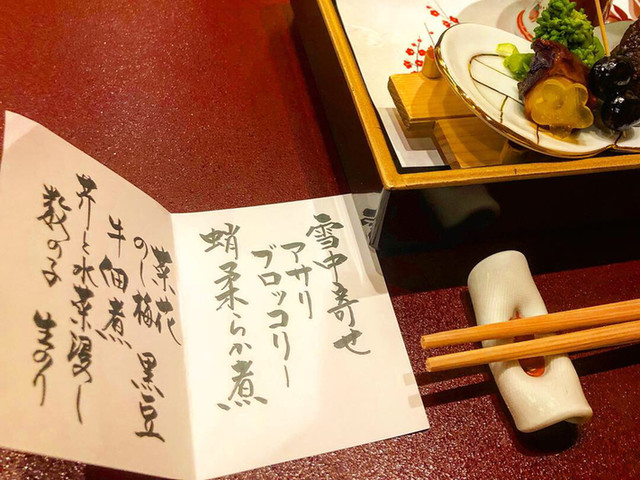 雪中寄せ
アサリ
ブロッコリー
蛸柔らか煮
菜花
のし梅 黒豆
牛佃煮
芹と水菜浸し
数の子 生のり